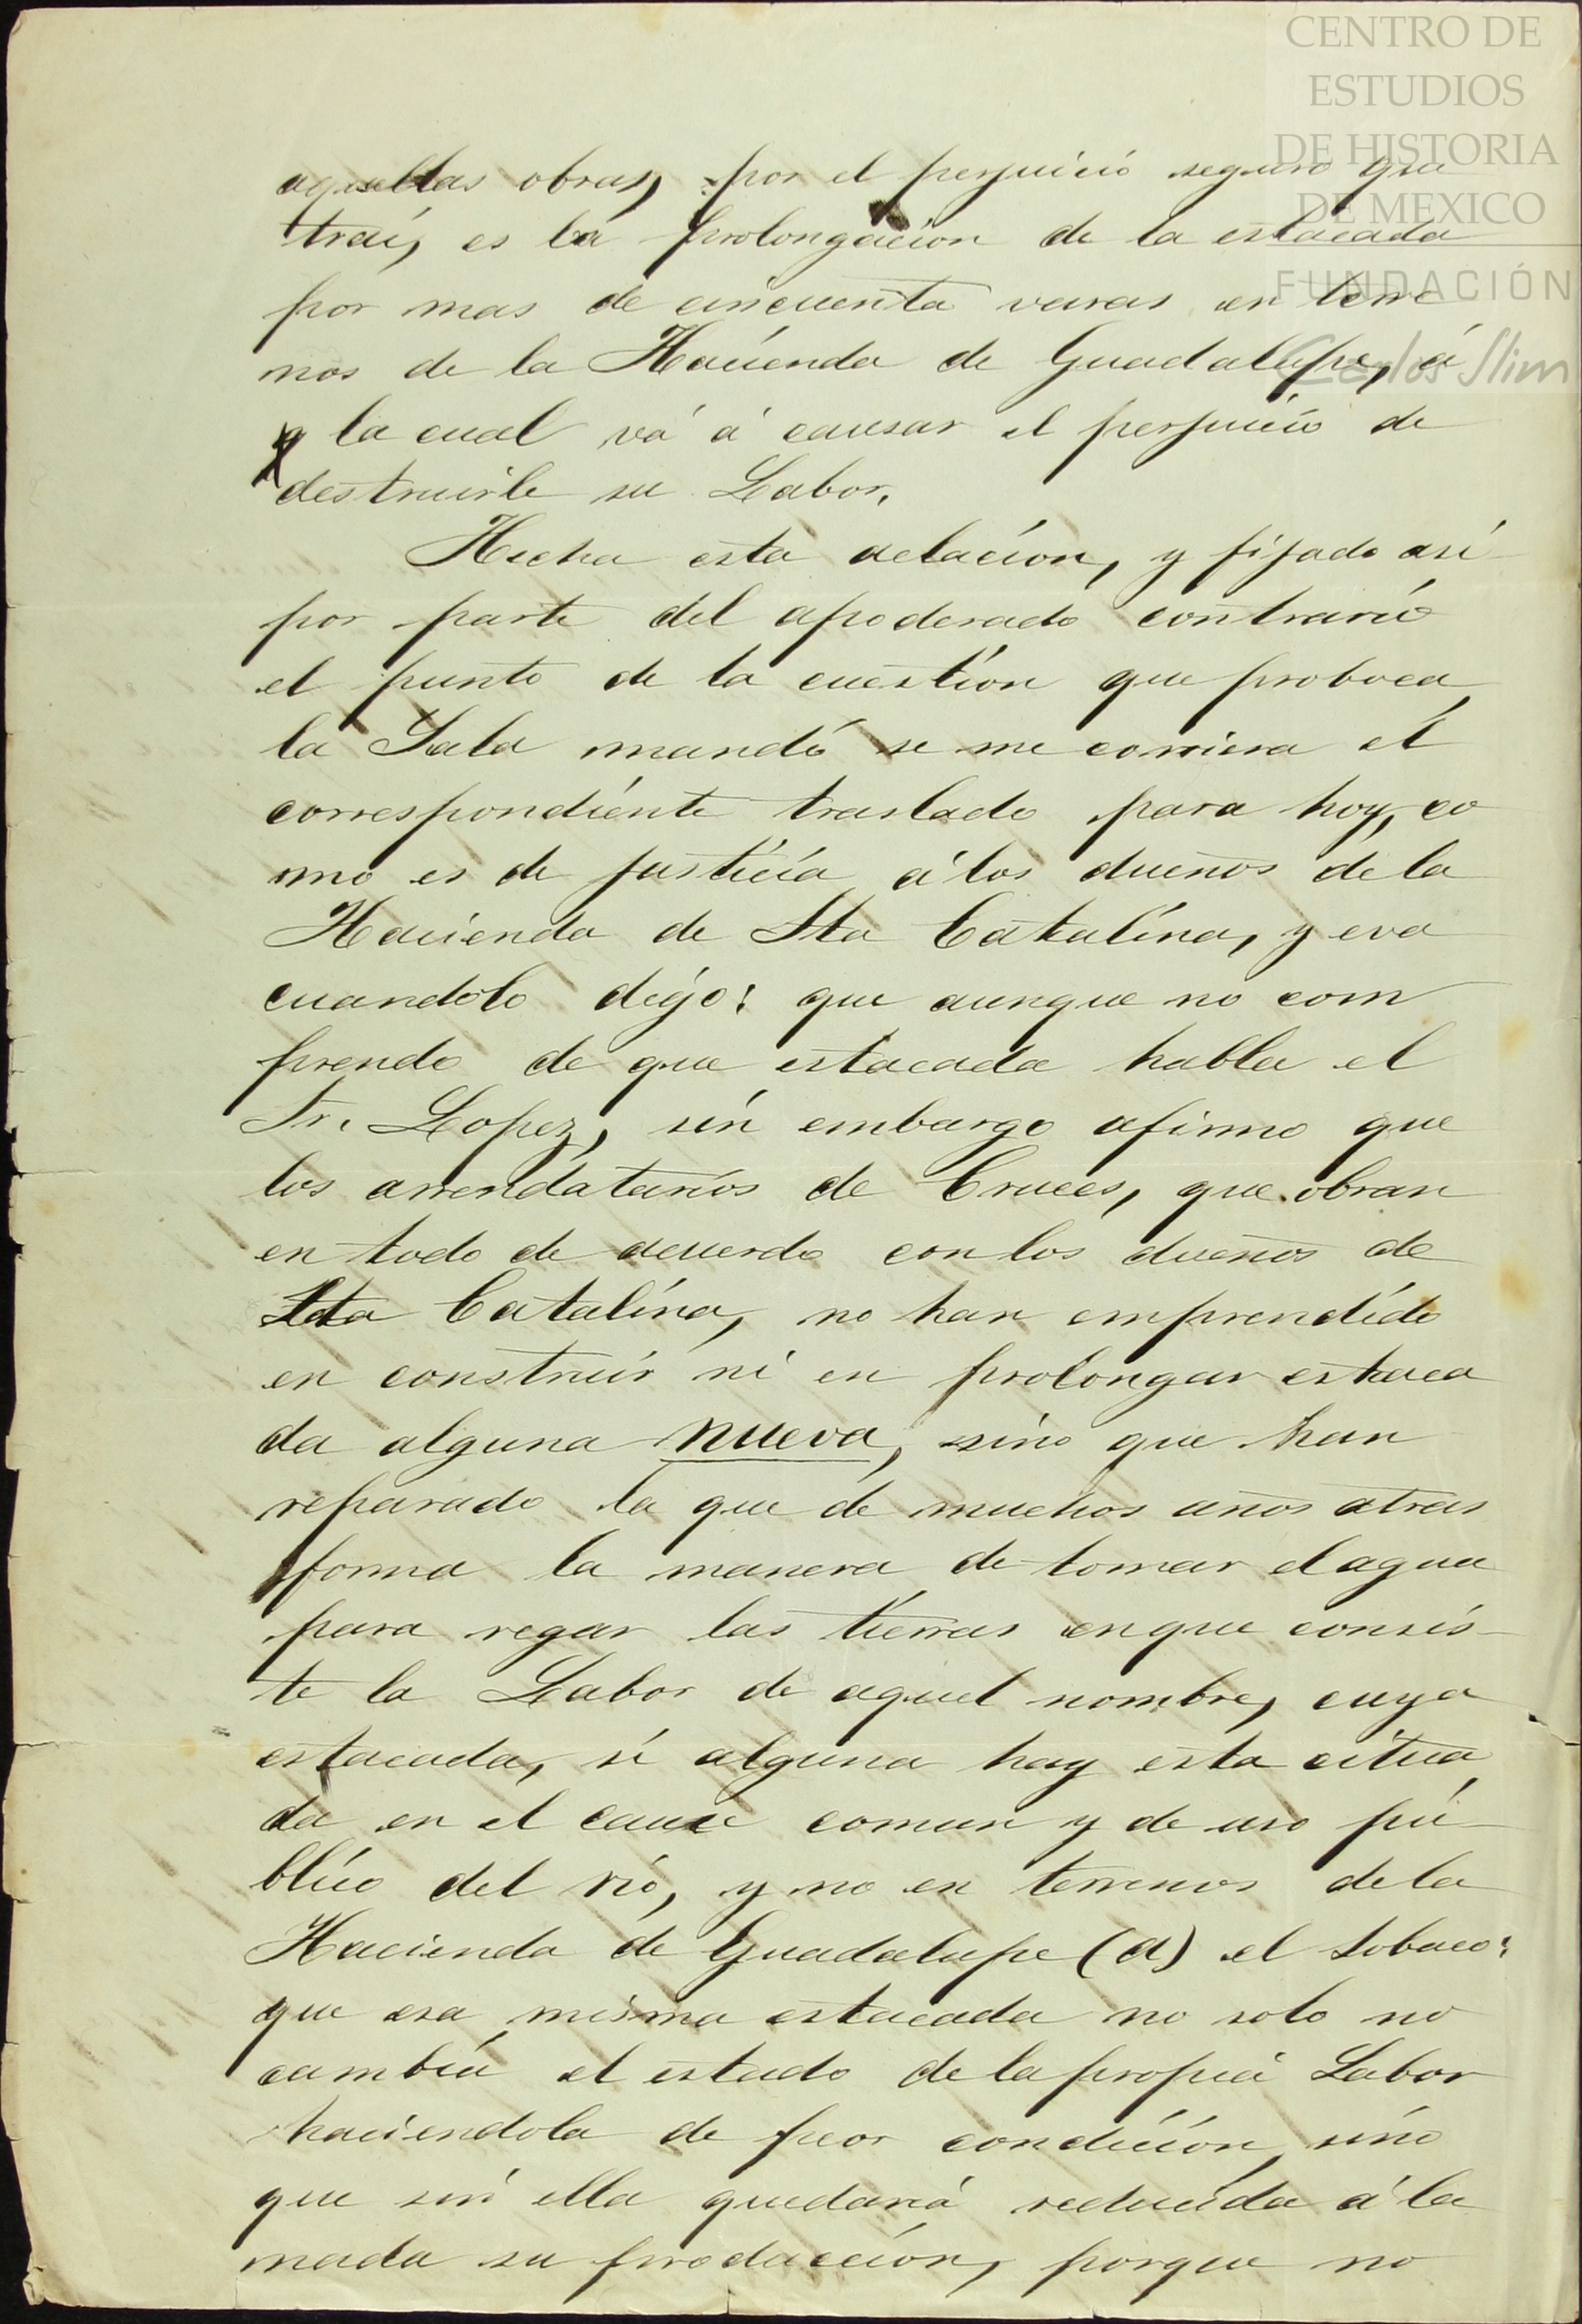 CENTRO DE
ESTUDIOS
DE HISTORIA
DE MEXICO
FUNDACIÓN
Carlos Slim
aquellas obras, por el perjuicio seguro que
trai, es la prolongacion de la estacada
por mas de cincuenta varas en terre
nos de la Hacienda de Guadalupe, á
la cual vá á causar el perjuicio de
destruirle su Labor.
Hecha esta aclacion, y fijado asi
por parte del apoderado contrario
el punto de la cuestion que proboca
la Sala mandó se me corriera el
correspondiente traslado para hoy, co
mo es de justicia á los dueños de la
Hacienda de Sta Catalina, y eva
cuandolo digo: que aunque no com
prendo de que estacada habla el
Sr. Lopez, sin embargo afirmo que
los arrendatarios de Cruces, que obran
en todo de acuerdo con los dueños de
Sta Catalina, no han emprendido
en construir ni en prolongar estaca
da alguna nueva, sino que han
reparado la que de muchos años atras
forma la manera de tomar el agua
para regar las tierras en que consis-
te la Labor de aquel nombre, cuya
estacada, si alguna hay esta citua
da en el cause comun y de uso pú-
blico del rio, y no en terrenos de la
Hacienda de Guadalupe (a) el Sobaco:
que esa misma estacada no solo no
cambia el estado de la propia Labor
haciendola de peor condicion, sino
que sin ella quedaria reducida á la
nada su produccion, porque no